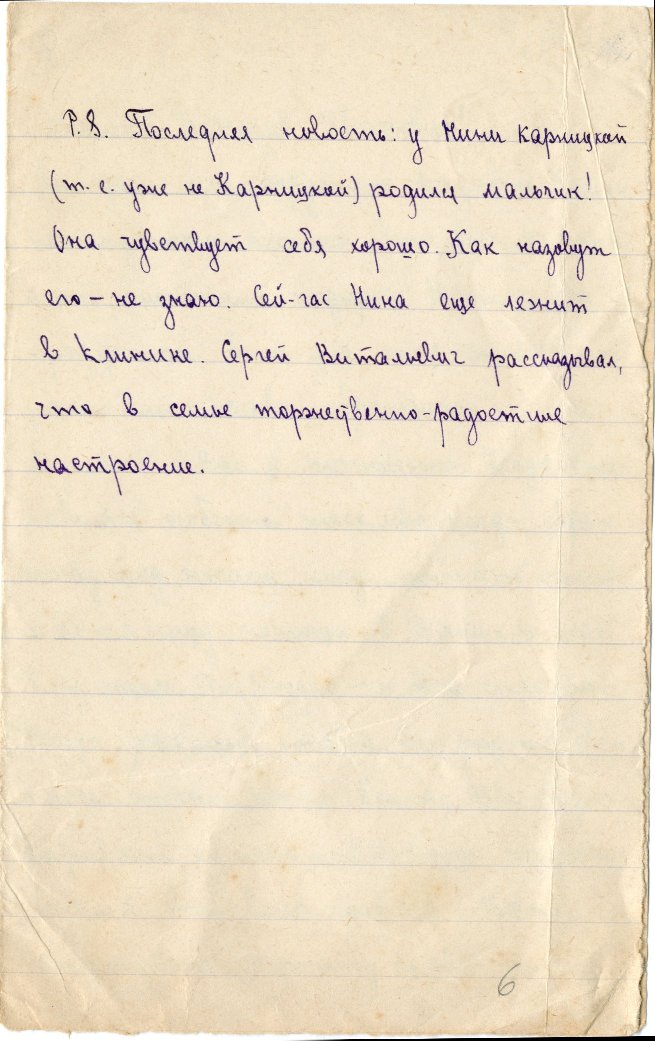 P.S. Последняя новость: у Нины Карницкой
(т.е. уже не Карницкой) родился мальчик!
Она чувствует себя хорошо. Как назовут
его – не знаю. Сей-час Нина еще лежит
в клинике. Сергей Витальевич рассказывал,
что в семье торжественно-радостное
настроение.
6